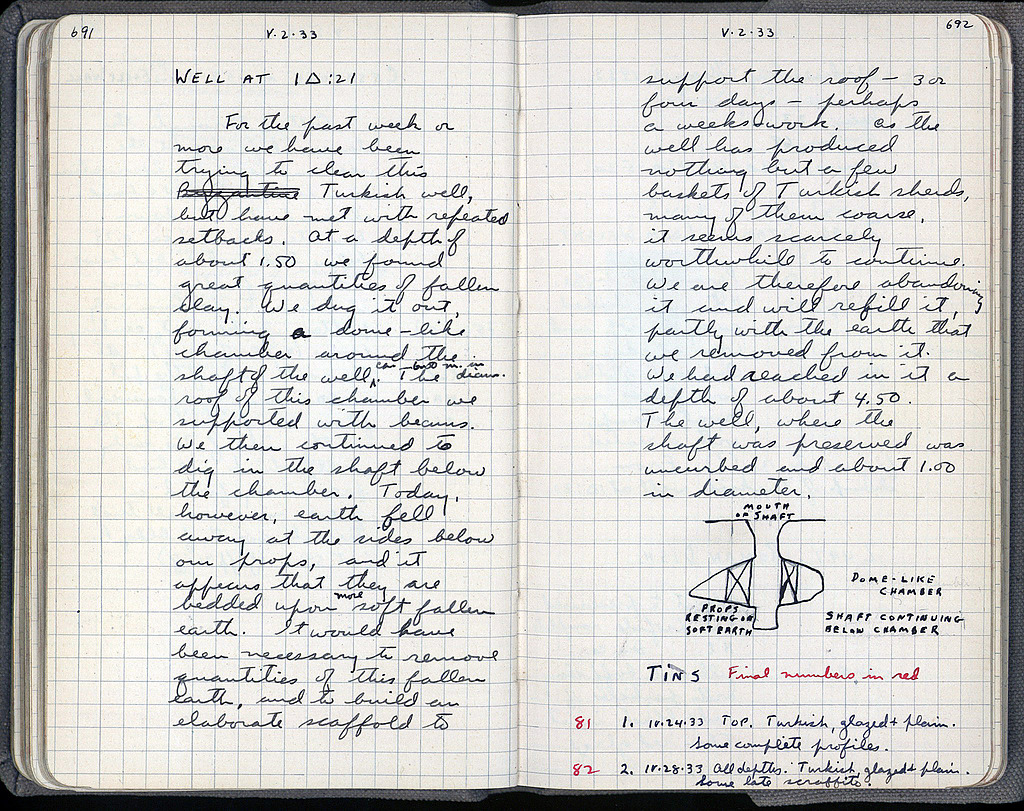 691
V.2.33
WELL AT 1Δ:21
For the past week or
more we have been
trying to clear this
Byzantine Turkish well,
but have met with repeated
setbacks. At a depth of
about 1.50 we found
great quantities of fallen
clay. We dug it out,
forming a dome-like
chamber around the
shaft of the well, in diam. The
roof of this chamber we
supported with beams.
We then continued to
dig in the shaft below
the chamber. Today,
however, earth fell
away at the sides below
our props, and it
appears that they are
bedded upon more soft fallen
earth. It would have
been necessary to remove
quantities of this fallen
earth, and to build an
elaborate scaffold to
692
V.2.33
support the roof – 3 or
four days – perhaps
a weeks work. As the
well has produced
nothing but a few
baskets of Turkish sherds,
many of them coarse,
it seems scarcely
worthwhile to continue.
We are therefore abandoning
it and will refill it,
partly with the earth that
we removed from it.
We had reached in it a
depth of about 4.50.
The well, where the
shaft was preserved was
uncurbed and about 1.00
in diameter.
MOUTH
OF SHAFT
DOME-LIKE
CHAMBER
PROPS
RESTING ON
SOFT EARTH
SHAFT CONTINUING
BELOW CHAMBER
TINS Final numbers in red
81 1. IV.24.33 TOP. Turkish, glazed + plain.
Some complete profiles.
82 2. IV.28.33 All depths. Turkish, glazed + plain.
Some late scraffito.